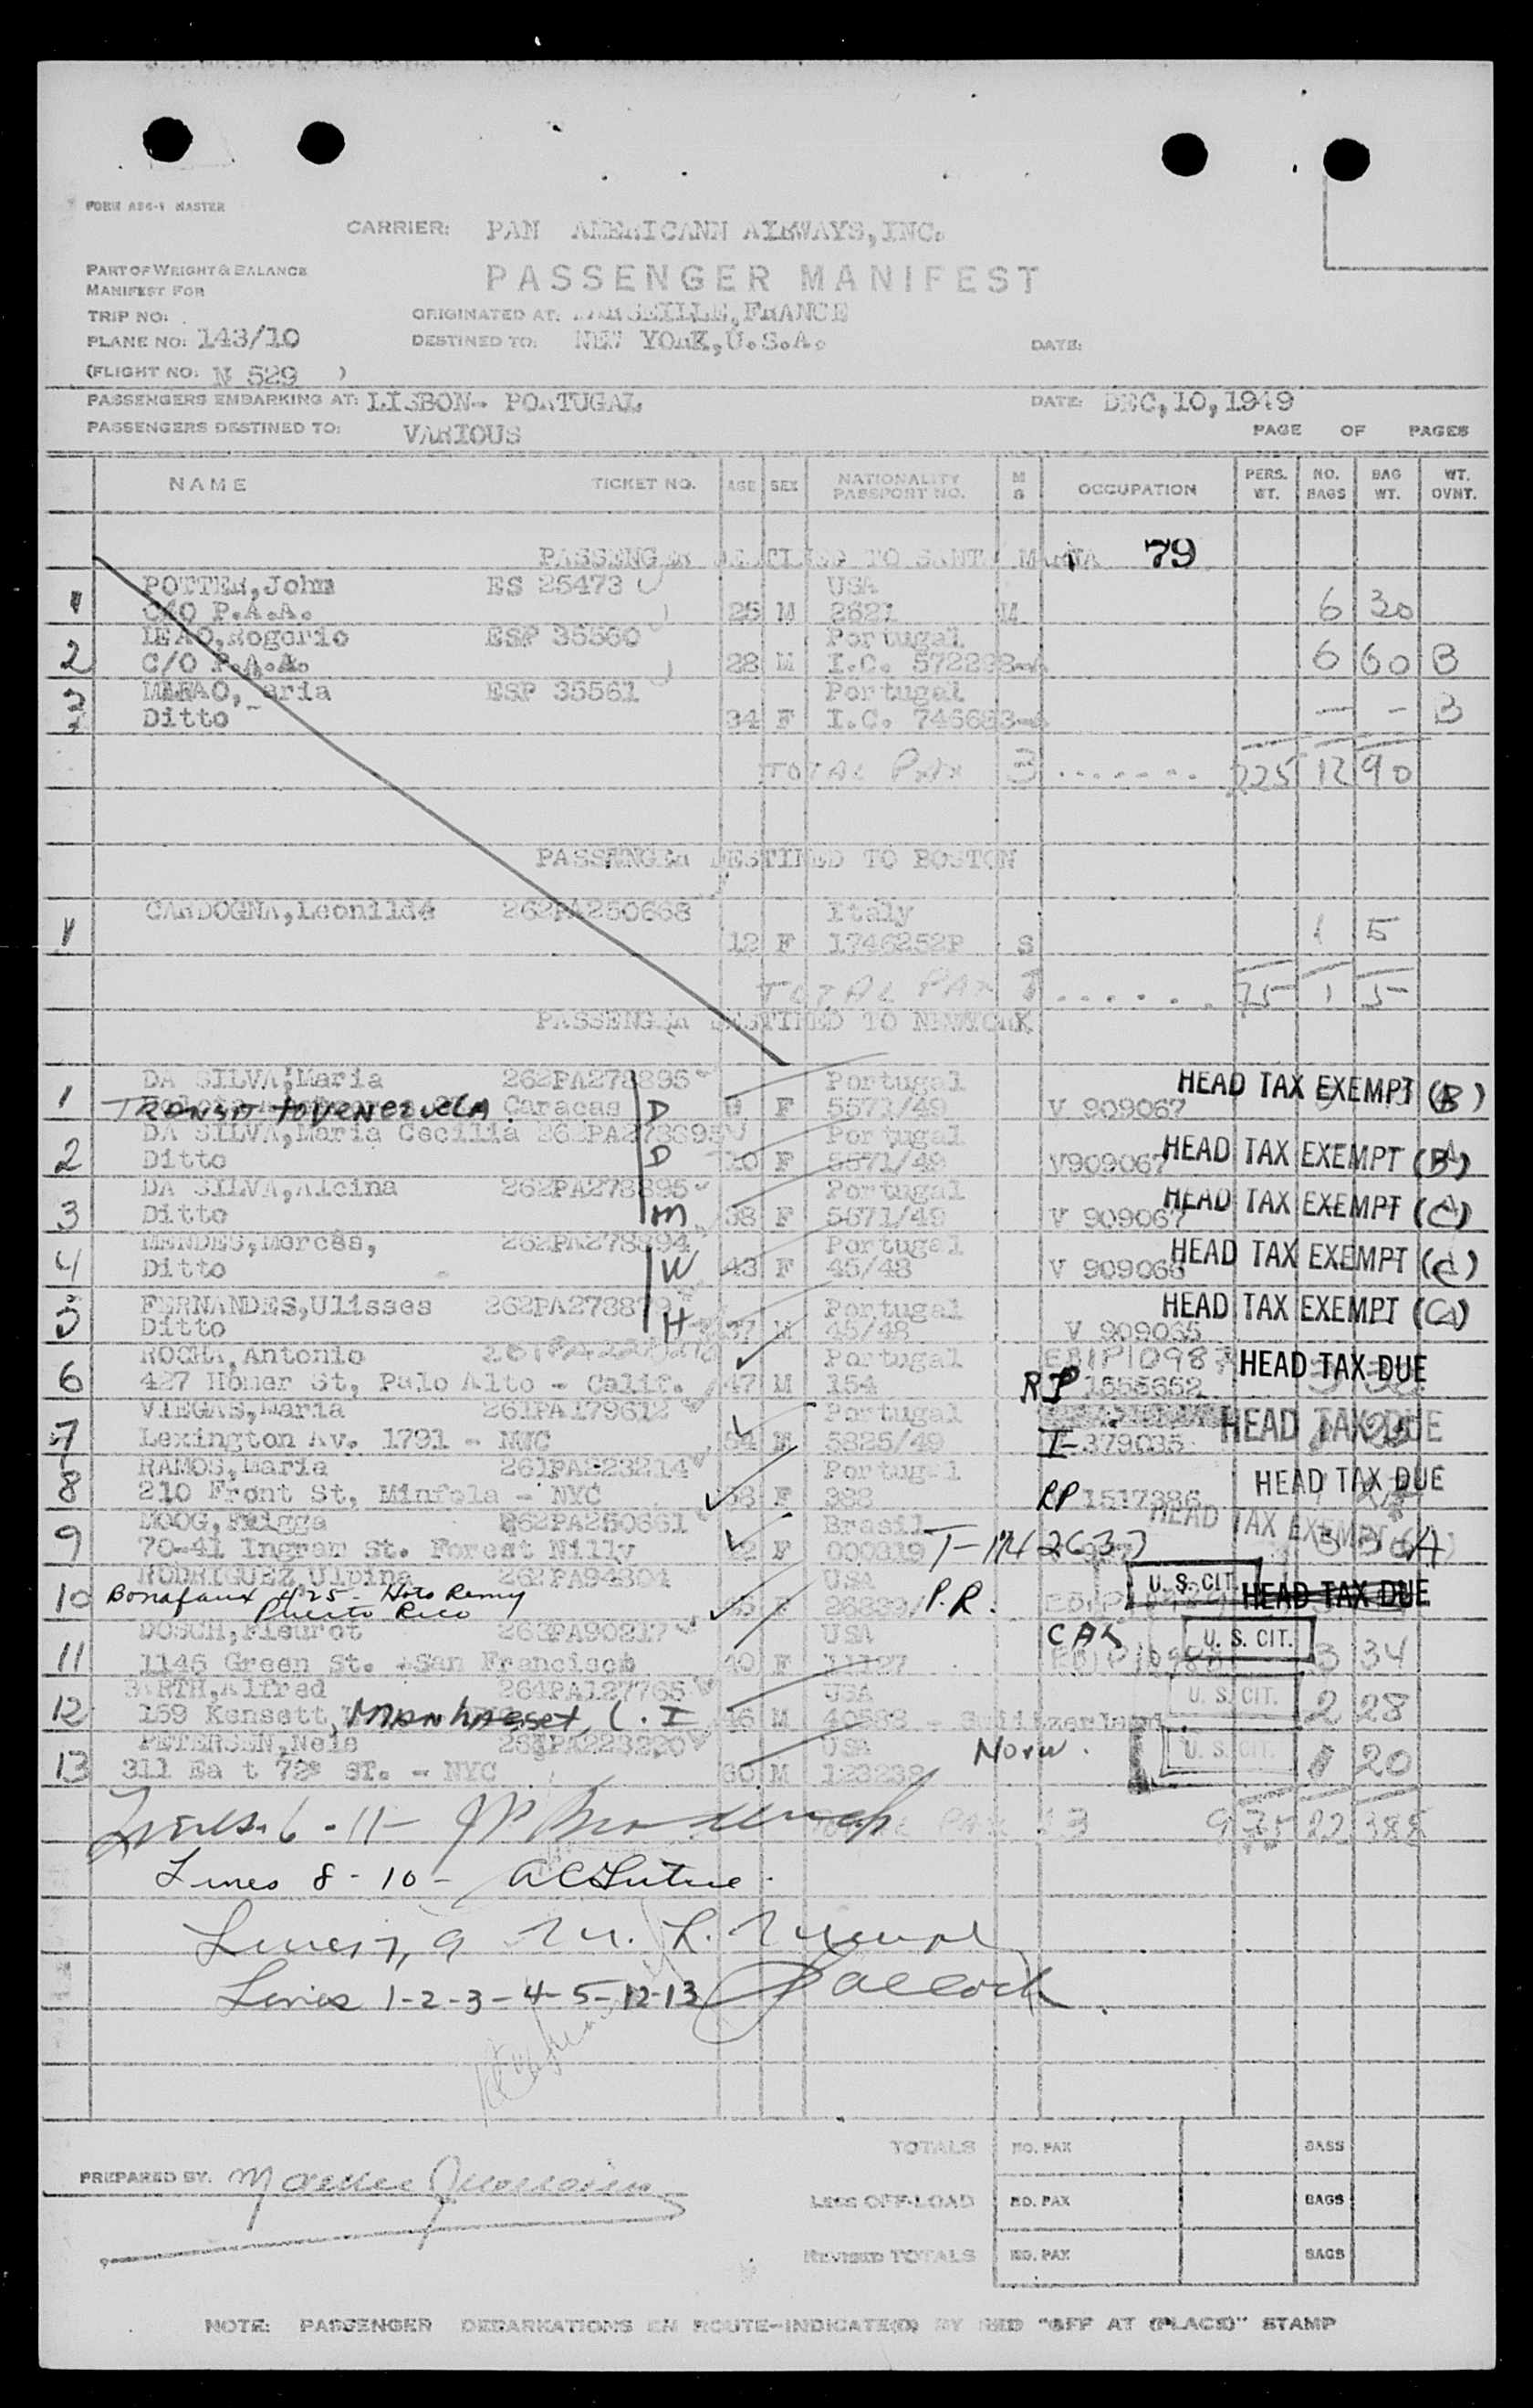 FORM MASTER
CARRIER: PAN AMERICANN AIRWAYS,INC.
PART OF WEIGHT & BALANCE
MANIFEST FOR
PASSENGER MANIFEST
TRIP NO:
ORIGINATED AT: MARSEILLE,FRANCE
PLANE NO: 143/10
DESTINED TO: NEW YORK,U.S.A.
DATE:
(FLIGHT NO: N 529 )
PASSENGERS EMBARKING AT: LISBON- PORTUGAL
DATE: DEC,10,1949
PASSENGERS DESTINED TO: VARIOUS
PAGE OF PAGES
NAME TICKET NO. AGE SEX NATIONALITY PASSPORT NO. M S OCCUPATION PERS. WT. NO. BAGS BAG WT. WT. OVNT.
PASSENGER DESTINED TO SANTA MARIA 79
POTTER,John ES 25473 USA
1 C/O P.A.A. 26 M 2621 M 6 30
LEAO,Rogerio ESP 35560 Portugal
2 C/O P.A.A. 28 M I.C. 6 60 B
Maria ESP 35561 Portugal
3 Ditto 34 F I.C. - - B
TOTAL PAX 3 ....... 225 12 90
PASSENGER DESTINED TO BOSTON
CARDOGNA,Leonilde 262PA250668 Italy
1 12 F 1746252P S 1 5
TOTAL PAX 1 ...... 75 1 5
PASSENGER DESTINED TO NEWYORK
DA SILVA,Maria 262PA278895 Portugal HEAD TAX EXEMPT (B)
1 TRANSIT to VENEZUELA Caracas D F 5571/49 V 909067
DA SILVA,Maria Cecilia 262PA278895 Portugal
2 Ditto D 10 F 5571/49 V909067 HEAD TAX EXEMPT
DA SILVA,Alcina 262PA278895 Portugal
3 Ditto M 38 F 5571/49 V 909067 HEAD TAX EXEMPT
MENDES,Mercês, 262PA278894 Portugal
4 Ditto W 43 F 45/48 V 909066 HEAD TAX EXEMPT
FERNANDES,Ulisses 262PA278879 Portugal HEAD TAX EXEMPT
5 Ditto H 37 M 45/48 V 909065
ROCHA,Antonio Portugal HEAD TAX DUE
6 427 Homer St, Palo Alto - Calif. 47 M 154 RP 1555652
VIEGAS,Maria 261PA179612 Portugal HEAD TAX DUE
7 Lexington Av. 1791 - NYC 54 F 5825/49 I-379035
RAMOS,Maria 261PA223214 Portugal HEAD TAX DUE
8 210 Front St, Minfola - NYC F 388 RP 1517386
MOOG, 262PA250661 Brasil HEAD TAX EXEMPT (A)
9 70-41 Ingram St. Forest Nilly F 000819
RODRIGUEZ,Ulpina 262PA94804 USA U. S. CIT. HEAD TAX DUE
10 Bonafoux 425 - Hato Remy F 26839/ P.R.
Puerto Rico
DOSCH,Fleurot USA CAL U. S. CIT.
11 1145 Green St. San Francisco 40 F 11127 3 34
Alfred 264PA127765 USA U. S. CIT.
12 159 Kensett, MANHASSET, L.I 46 M Switzerland 2 28
PETERSEN,Nels USA Norw. U. S. CIT.
13 311 Ea t 72s ST. - NYC 30 M 123238 1 20
TOTAL PAX 13 975 22 388
Lines 6 - 11 -
Lines 8 - 10 -
Lines 7, 9
Lines 1-2-3-4-5-12-13
TOTALS NO. PAX BAGS
PREPARED BY:
LESS OFF-LOAD NO. PAX BAGS
REVISED TOTALS NO. PAX BAGS
NOTE: PASSENGER DEBARKATIONS EN ROUTE-INDICATE(D) BY RED "OFF AT (PLACE)" STAMP